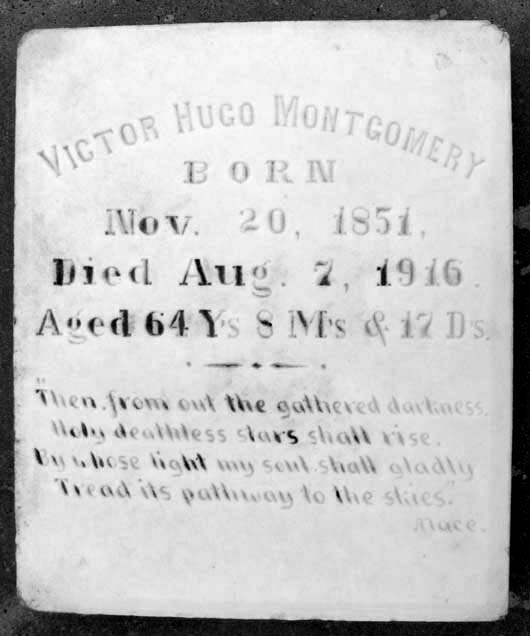 VICTOR HUGO MONTGOMERY
BORN
Nov. 20, 1851.
Died Aug. 7, 1916.
Aged 64 Y's 8 M's & 17 D's.
"Then, from out the gathered darkness,
Holy deathless stars shall rise.
By whose light my soul shall gladly
Tread its pathway to the skies."